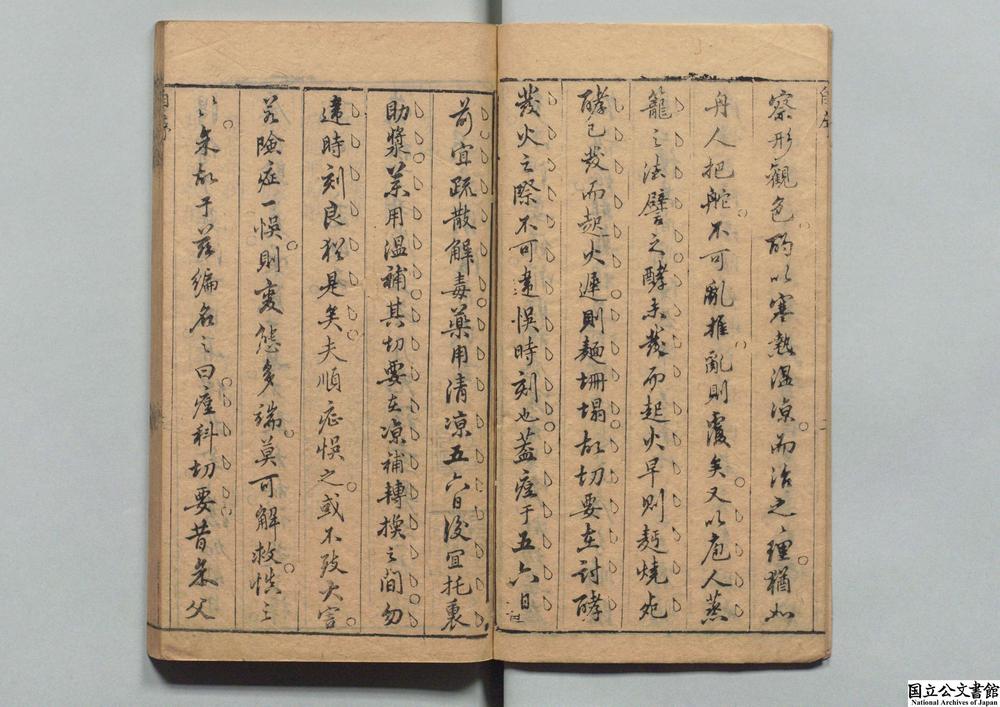 察形觀色酌以寒熱温凉而治之理猶如
舟人把舵不可亂推亂則覆矣又以庖人蒸
籠之法譬之酵未發而起火早則麵燒
酵已發而起火遲則麵坍塌故切要在討酵
發火之際不可違悞時刻也蓋痘于五六日
前宜疏散解毒藥用清凉五六日後宜托裏
助漿藥用温補其切要在凉補轉換之間勿
違時刻良猶是矣夫順症悞之或不致大害
若險症一悞則变態多端莫可解救慎之
之朱故于茲編名之曰痘科切要昔朱父
国立公文書館
National Archives of Japan